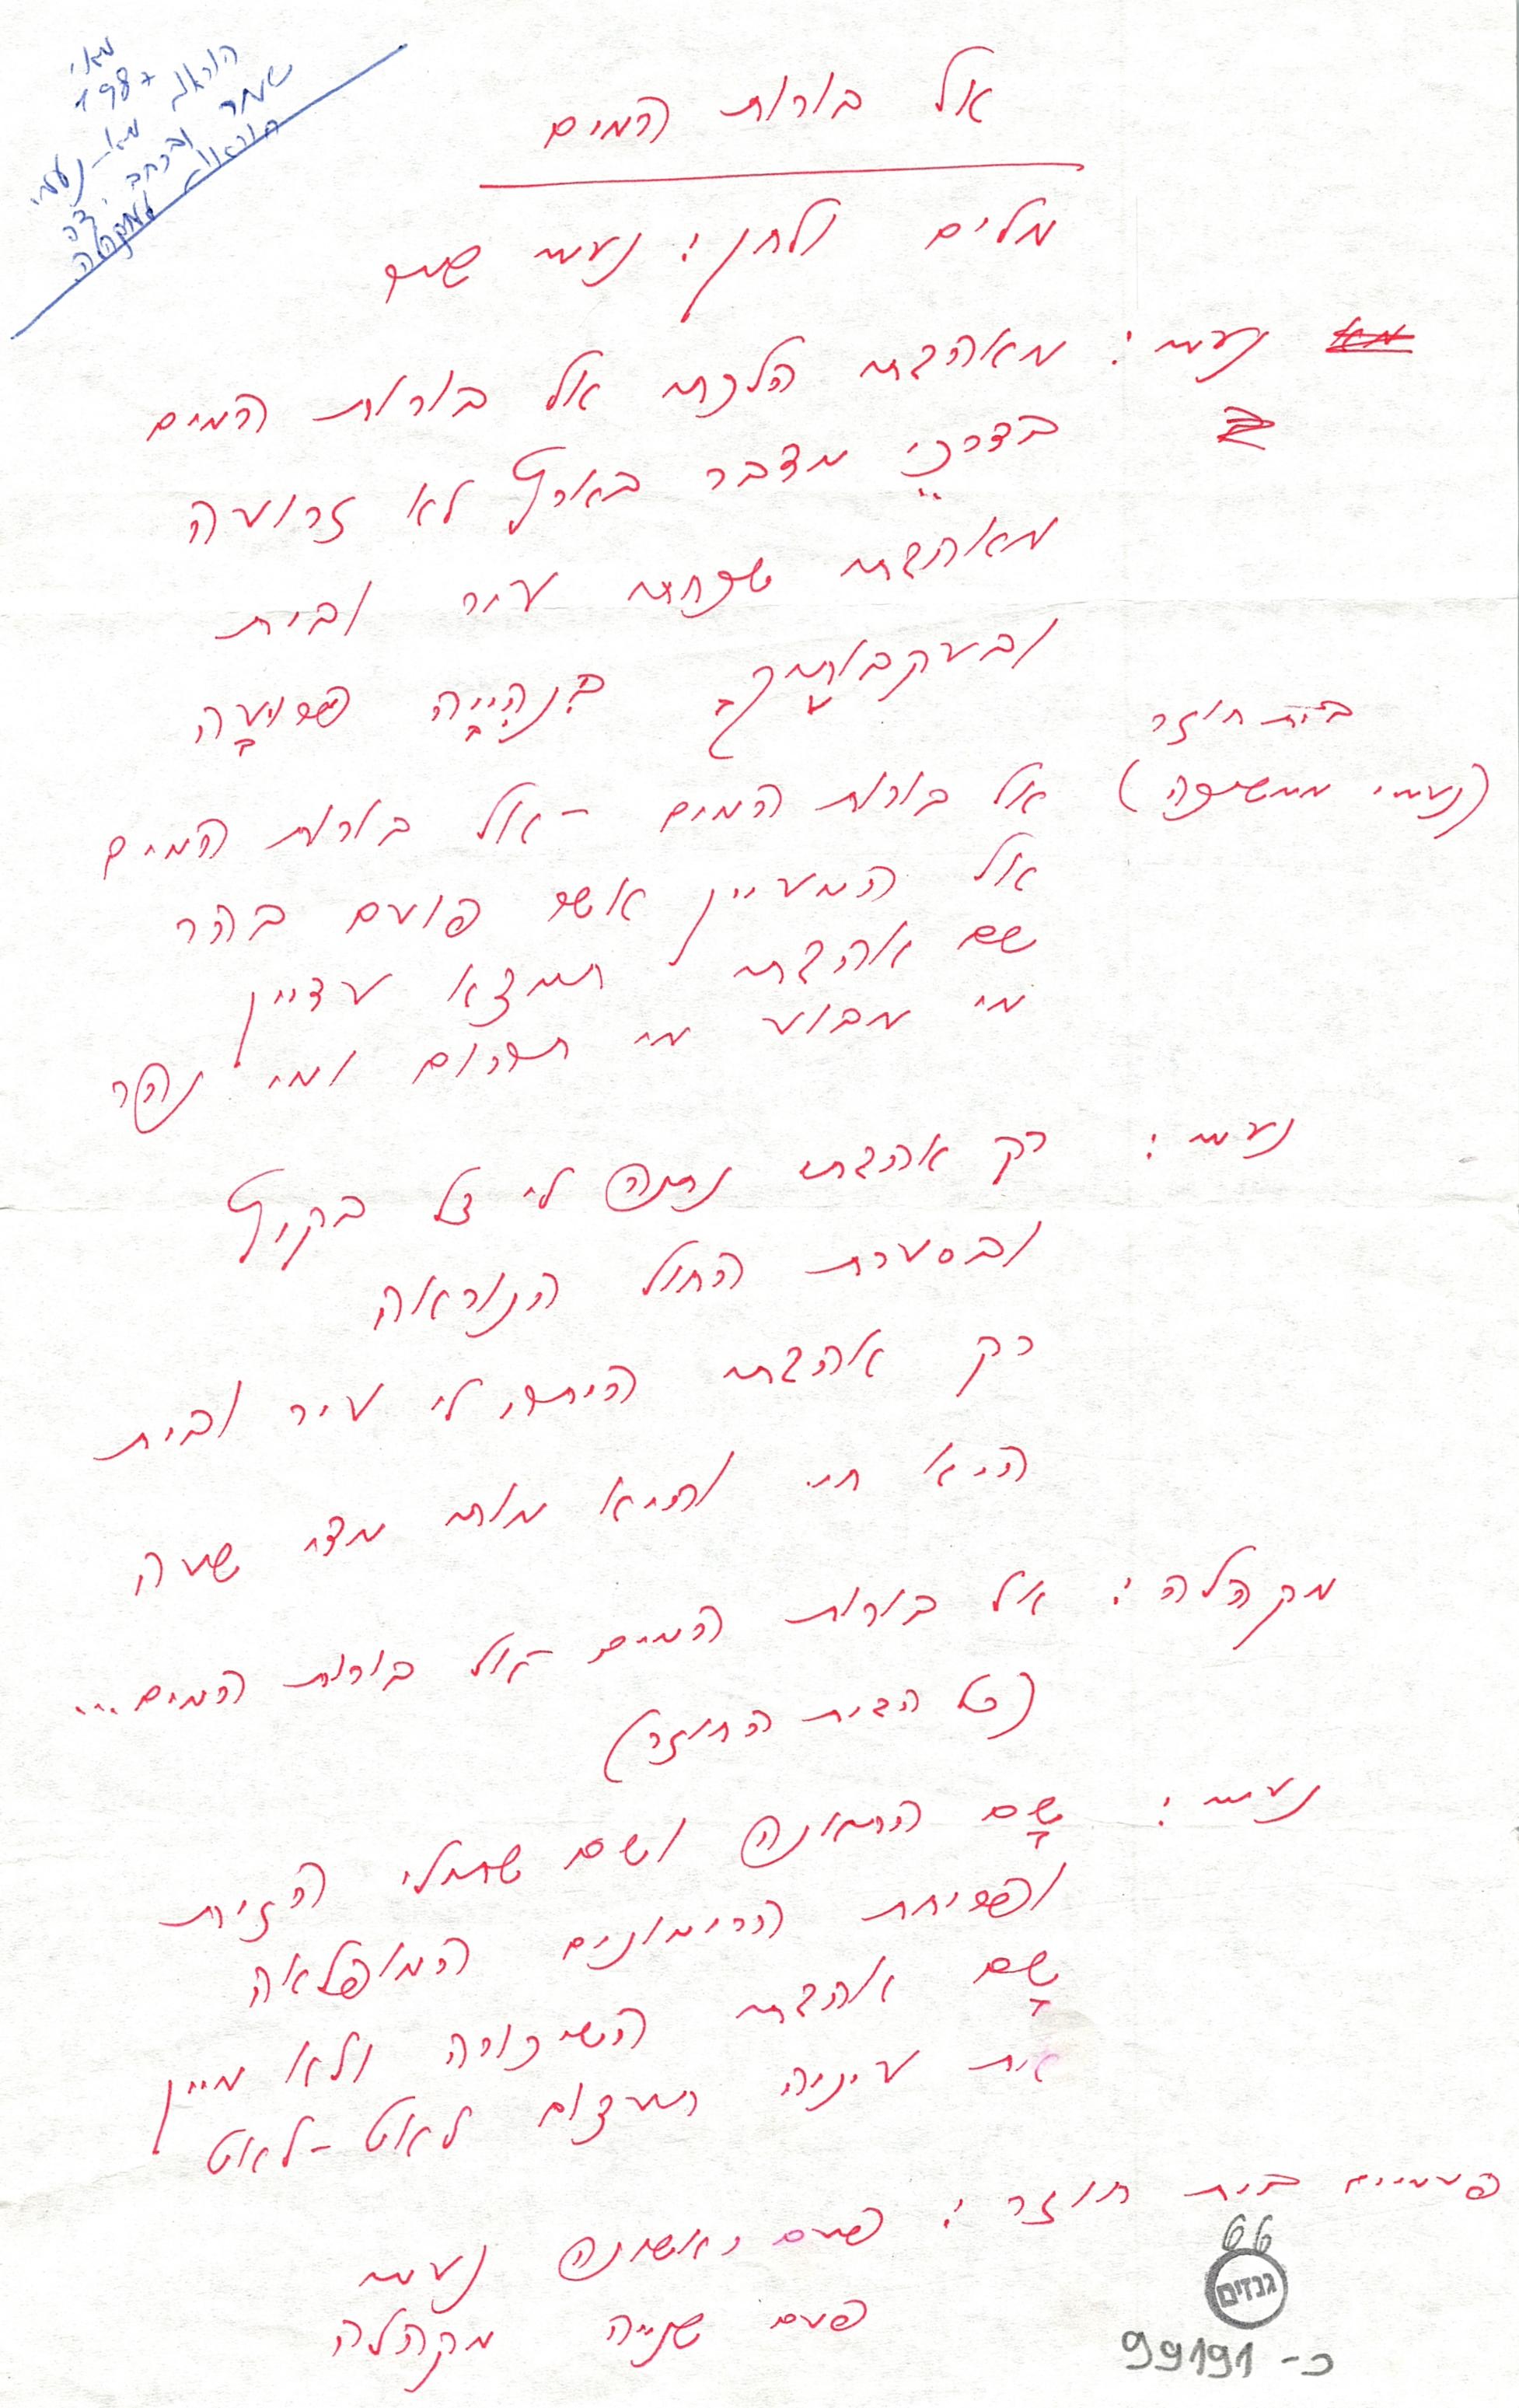 מאי
1987
הוראה מא- נעמי
שמר
הוראות למקהלה
אל בורות המים
מלים ולחן: נעמי שמר
נעמי: מאהבתי הלכתי אל בורות המים
בדרכי מדבר בארץ לא זרועה
מאהבתי שכחתי עיר ובית
ובעקבותיה בנהייה פרועה
בית חוזר
(נעמי ממשיכה) אל בורות המים - אל בורות המים
אל המעיין אשר פועם בהר
שם אהבתי תמצא עדיין
מי מבוע מי תהום ומי נהר
נעמי: רק אהבתי נתנה לי צל בקיץ
ובסערת החול הנוראה
רק אהבתי היתה לי עיר ובית
היא חיי והיא מותי מדי שעה
מקהלה: אל בורות המים - אל בורות המים...
(כל הבית החוזר)
נעמי: שָם התאנה ושם שתילי הזית
ופריחת הרימונים המופלאה
שָם אהבתי השיכורה ולא מיין
את עיניה תעצום לאט-לאט
פעמיים בית חוזר: פעם ראשונה נעמי
פעם שנייה מקהלה
66
גנזים
כ- 99191